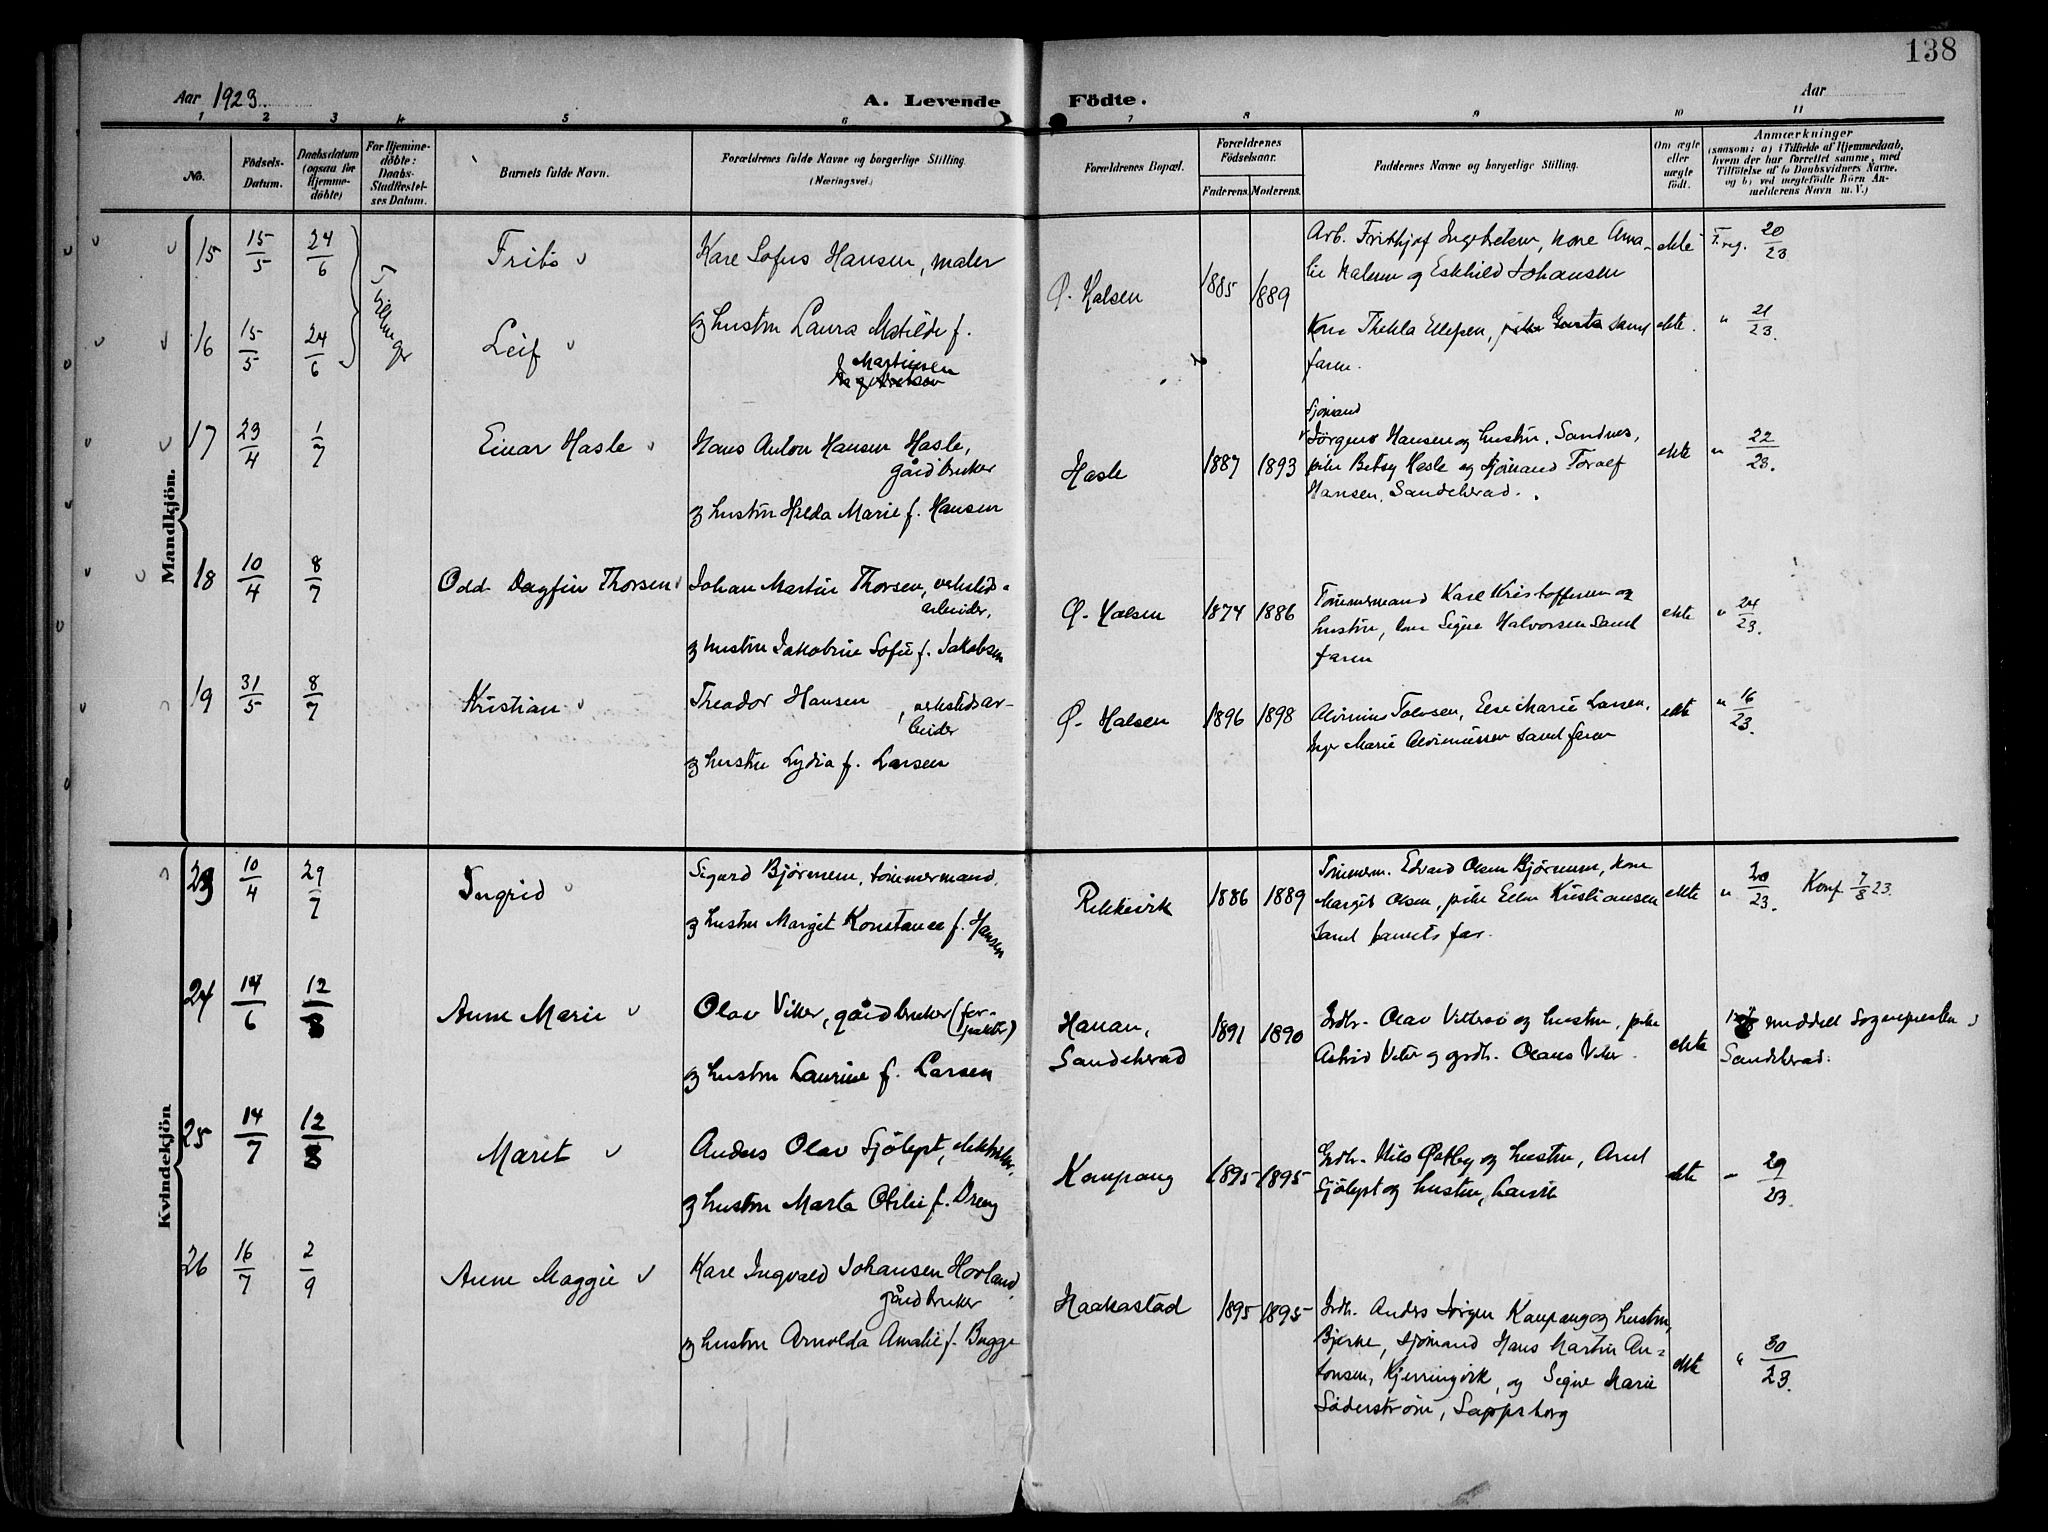 138
Aar 1923
A. Levende Födte.
Aar
1 2 3 4 5 6 7 8 9 10 11
No.
Födsels-
Datum.
Daabsdatum
(ogsaa for
Hjemme-
döbte)
For Hjemme-
döbte:
Daabs-
Stadfæstel-
ses Datum.
Barnets fulde Navn.
Forældrenes fulde Navne og borgerlige Stilling.
(Næringsvei.)
Forældrenes Bopæl.
Forældrenes
Födselsaar.
Faderens. Moderens.
Faddernes Navne og borgerlige Stilling.
Om ægte
eller
uægte
födt.
Anmærkninger
(saasom: a) i Tilfælde af Hjemmedaab,
hvem der har forrettet samme, med
Tilföielse af to Daabsvidners Navne,
og b) ved uægtefödte Börn An-
melderens Navn m. V.)
Mandkjön.
15 15/5 24/6 Tvillinger
Karl Sofus Hansen, maler
Ø. Halsen 1885 1889
Arb. Frithjof Ingebretsen, kone Ama-
lie Halsen og Eskhild Johansen
ekte F. reg. 20/23
16 15/5 24/6 Leif
og hustru Laura Matilde f.
Martinsen
Kone Thekla Ellefsen, samt
faren.
ekte. " 21/23.
17 23/4 1/7 Einar Hasle
Hans Anton Hansen Hasle,
gårdbruker
og hustru Hilda Marie f. Hansen
Hasle 1887 1893
sjömand
Jörgen Hansen og hustru, Sandnes,
pike Betsy Hasle og sjömand Toralf
Hansen, Sandeherad.
ekte " 22/23.
18 10/4 8/7 Odd Dagfin Thorsen
Johan Martin Thorsen, verksteds-
arbeider,
og hustru Jakobine Sofie f. Jakobsen
Ø. Halsen 1874 1886
Tömmermand Karl Kristoffersen og
hustru, Signe Halvorsen samt
faren
ekte " 24/23.
19 31/5 8/7 Kristian
Theodor Hansen, verkstedsar-
beider
og hustru Lydia f. Larsen
Ø. Halsen 1896 1898
Tolvsen, Else Marie Larsen,
Inger Marie samt faren
ekte " 16/23.
Kvindekjön
23 10/4 29/7 Ingrid
Sigurd Björnsen, tömmermand,
og hustru Margit Konstance f. Hansen
Rekkevik 1886 1889
Tömmerm. Edvard Olsen Björnsen, kone
Margit Olsen, pike Ellen Kristiansen
samt barnets far.
ekte " 20/23. Konf. 7/8 23.
24 14/6 12/8 Anne Marie
Olav Viker, gårdbruker (for-
pakter)
og hustru Laurine f. Larsen
Hauan,
Sandeherad
1891 1890
Grdbr. Olav Vittersö og hustru, pike
Astrid Viker og grdbr. Olaus Viker.
ekte
meddelt sognepresten i
Sandeherad.
25 14/7 12/8 Marit
Anders Olav Sjölyst, elektriker,
og hustru Marta Otilie f. Dreng
Kaupang 1895 1895
Grdbr. Nils Østby og hustru, Arnt
Sjölyst og hustru, Larvik
ekte " 29/23.
26 16/7 2/9 Anne Maggie
Karl Ingvald Johansen Hovland,
gårdbruker
og hustru Arnolda Amalie f. Bugge
Haakastad 1895 1895
Grdbr. Anders Jörgen Kaupang og hustru,
Bjerke, sjömand Hans Martin An-
tonsen, Kjerringvik, og Signe Marie
Söderström, Sarpsborg
ekte " 30/23.